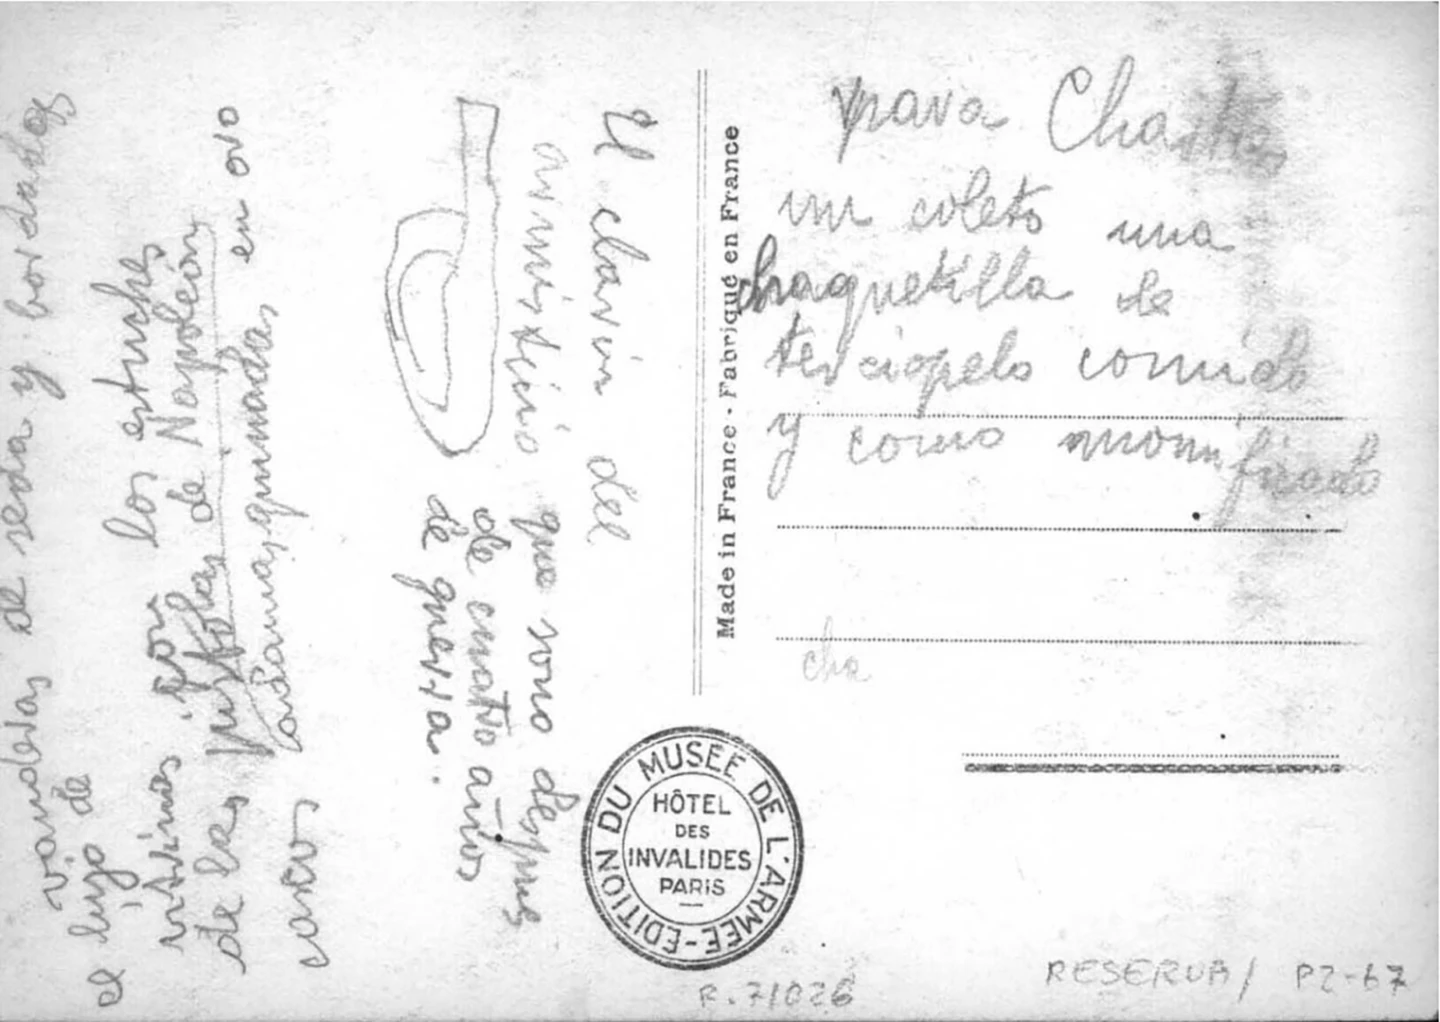 para
un coleto una
chaquetilla de
terciopelo comido
y como momificado
cha
Made in France - Fabriqué en France
El clarin del
armisticio que sono despues
de cuatro años
de guerra.
vandoleras de seda y bordados
el lujo de
intimos con los estuches
de las pistolas de Napoleón
adamasquinadas en oro
cascos
EDITION DU MUSÉE DE L'ARMÉE
HÔTEL
DES
INVALIDES
PARIS
R.71026
RESERVA/ P2-67